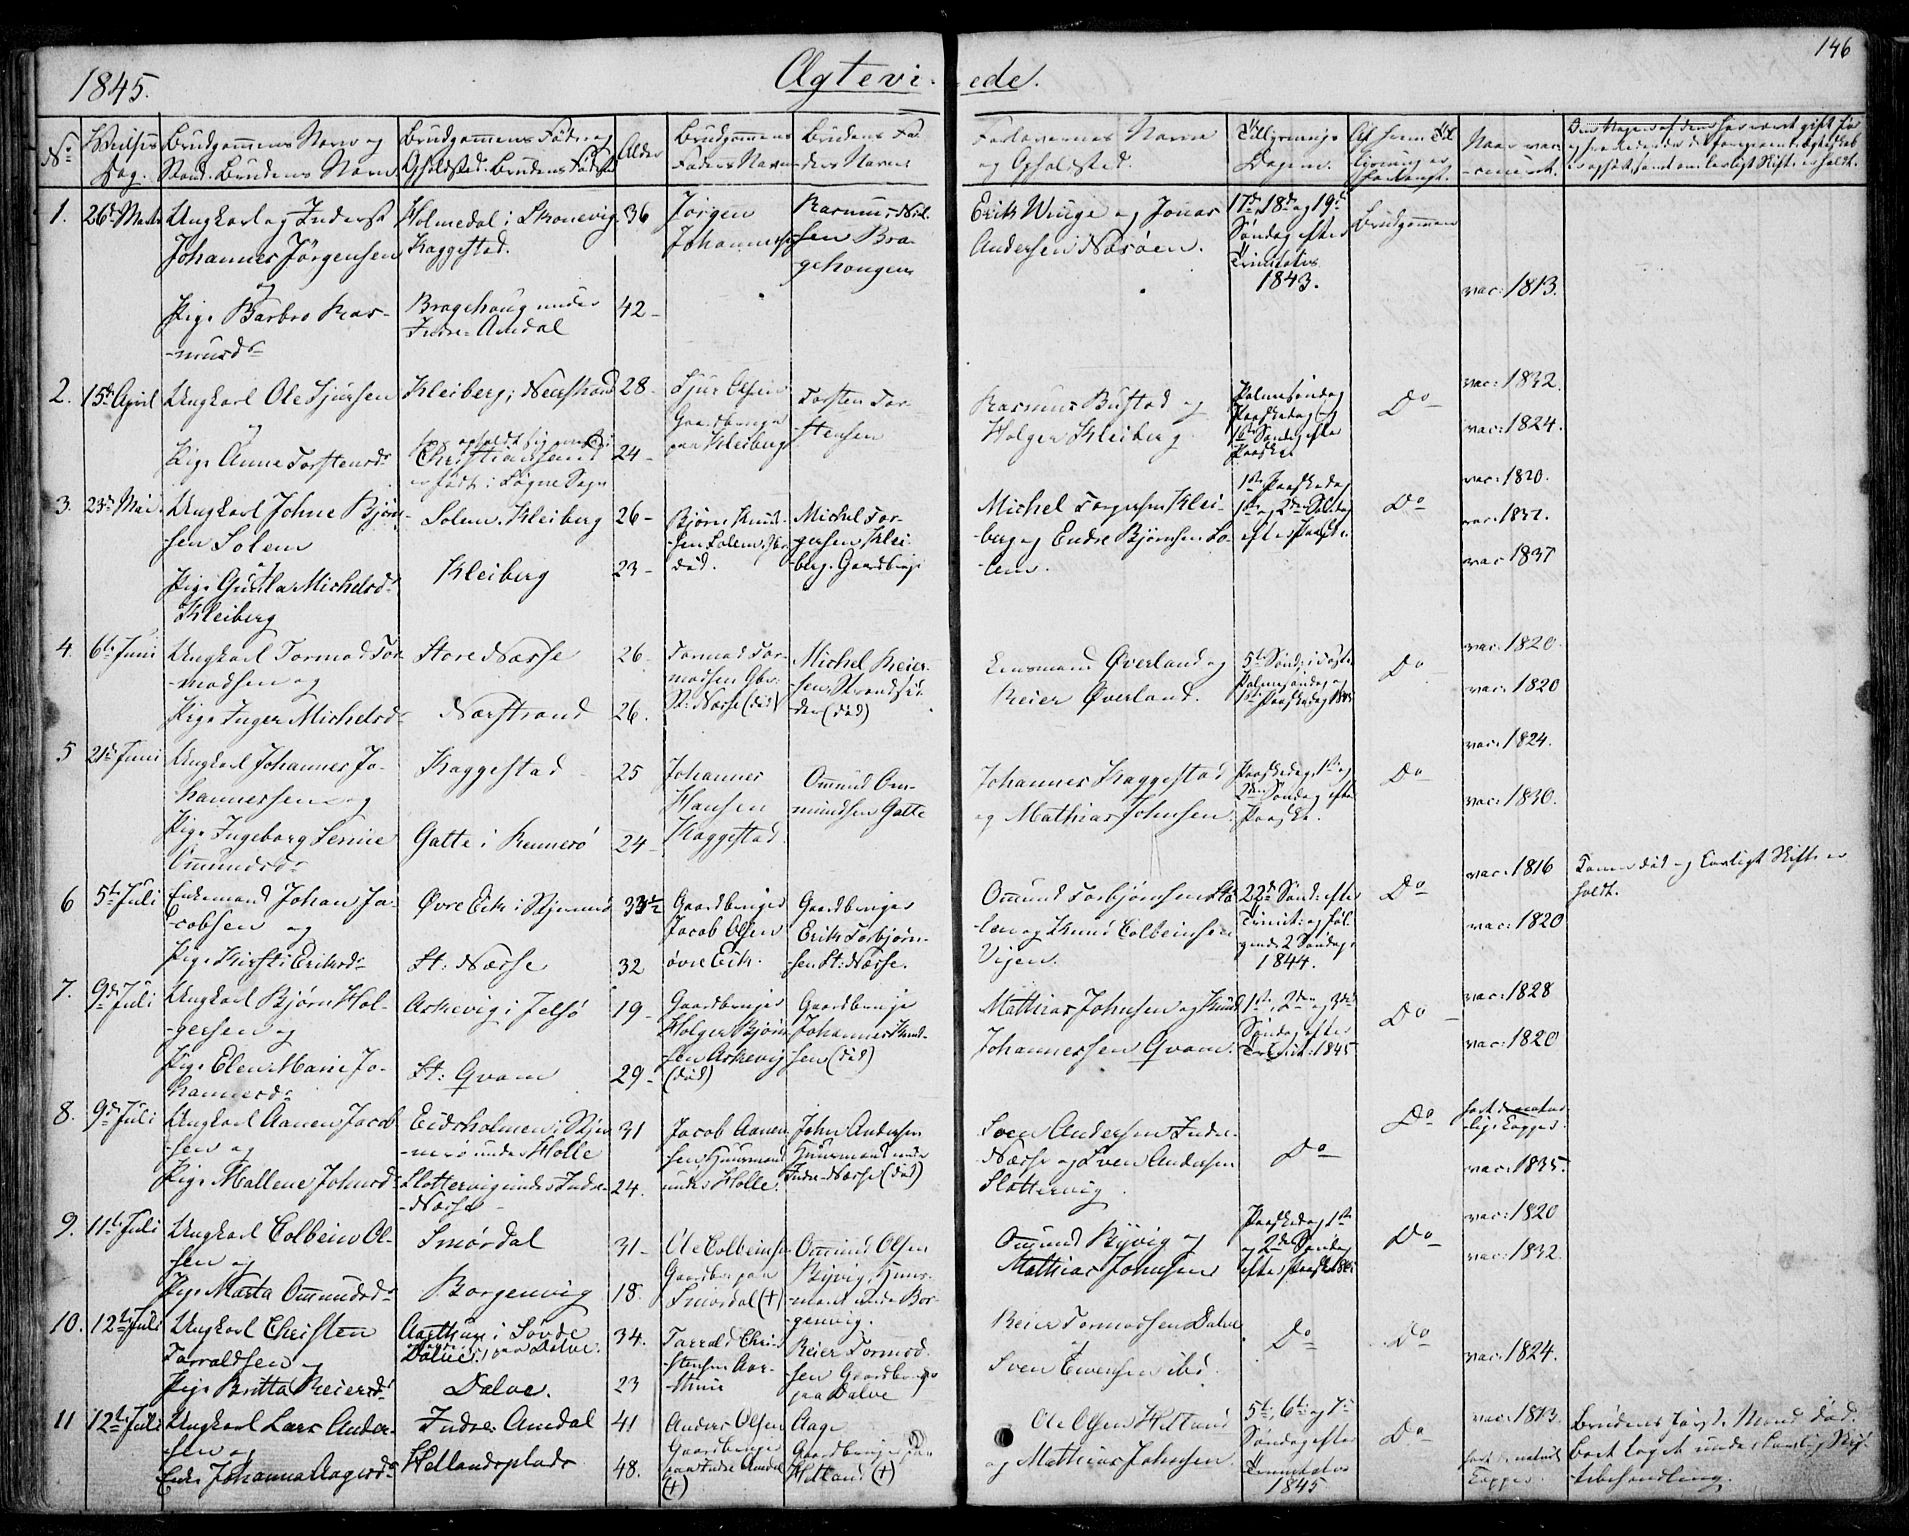 1845.
Ægteviede.
146
No
Vielses Dag.
Brudgommens Navn og Stand. Brudens Navn
Brudgommens Føde og Opholdssted. Brudens Fødested
Alder
Brudgommens Faders Navn
Brudens Faders Navn
Forlovernes Navne og Opholdsted.
Tillysnings Dagene.
Af hvem Tillysning er forlangt.
Naar vaccineret.
1. 26de Marts
Ungkarl og Inderst
Johannes Jörgensen
og
Pige Barbro Ras-
-musdr
Holmedal i Skonevig
Kaggestad.
Bragehoug under
Indre-Amdal
36
42
Jörgen
Johannesen
Rasmus Niel-
sen Bra-
gehougen
Erik Vinge og Jonas
Andersen Narsöen.
17de, 18de og 19de
Söndag efter
Trinitatis
1843.
Brudgommen
vac: 1813.
2. 15de April
Ungkarl Ole Sjursen
og
Pige Anna Torstensdr
Kleiberg i Nærstrand
opholdt sig
Christianssand
født i Søgne Sogn
28
24
Sjur Olsen
Gaardbruger
paa Kleiberg
Torsten Tor-
-stensen
Rasmus Bustad og
Holger Kleiberg
Palmesöndag
Paaskedag og
1ste Söndag efter
Paaske
Do
vac: 1832.
vac: 1824.
3. 23de Mai
Ungkarl Johne Bjørn-
-sen Solem
og
Pige Gunla Michelsdr
Kleiberg
Solem. Kleiberg
Kleiberg
26
23
Bjørn Knud-
-sen Solem,
död.
Michel Tor-
-gersen Klei-
berg. Gaardbruger
Michel Torgersen Klei-
-berg og Endre Bjørnsen So-
-lem.
1ste Paaskedag
1ste og 2den Söndag
efter Paaske
Do
vac: 1820.
vac: 1832.
vac 1837
4. 6te Juni
Ungkarl Tormod Tor-
-modsen og
Pige Inger Michelsdr
Store Nærse
Nærstrand
26
26.
Tormod Tor-
modsen Gbr.
St: Nærse (död)
Michel Reier-
-sen Strandsi-
den (död)
Enkemand Øverland og
Reier Øverland.
5te Sönd: i Faste
Palmesöndag og
1ste Paaskedag 1845
Do
vac: 1820.
vac: 1820
5 21de Juni
Ungkarl Johannes Jo-
hannessen og
Pige Ingeborg Serine
Omundsdr
Kaggestad
Gatte i Rennesö
25
24
Johannes
Hansen
Kaggestad
Omund Om-
mundsen Gatte
Johannes Kaggestad
og Mathias Johnsen
Paaskedag, 1ste og
2den Söndag efter
Paaske.
Do
vac: 1824.
vac: 1830.
6 5te Juli
Enkemand Johan Ja-
-cobsen og
Pige Kirsti Eriksdr
Øvre Eik i Skjernerö
St: Nærse
33½
32
Gaardbruger
Jacob Olsen
øvre Eik.
Gaardbruger
Erik Torbjørn-
sen St: Nærse.
Omund Torbjörnsen Stö-
len og Knud Colbeinsen
Vigen.
22de Sönd: efter
Trinit: og föl-
gende 2 Söndage
1844.
Do
vac: 1816
vac: 1820
Konen död og Lovligt Skifte er
holdt.
7. 9de Juli
Ungkarl Bjørn Hol-
-gersen og
Pige Elen Marie Jo-
hannesdr
Askevig i Jelsö
St: Qvam
19
29
Gaardbruger
Holger Bjørn-
sen Askevig
(död)
Gaardbruger
Johannes Knud-
sen (död)
Mathias Johnsen og Knud
Johannessen Qvam.
1ste, 2den og 3de
Söndag efter
Trinit: 1845
Do
vac: 1828
vac: 1820
8. 9de Juli
Ungkarl Aanen Jacob-
sen og
Pige Mallene Johnsdr
Eidsholmen i Skjer-
-nerö under Holle
Slottervig under Indre-
-Nærse
31
24.
Jacob Aanen-
-sen Huusmand
under Holle.
John Andersen
Huusmand under
Indre-Nærse (död)
Sven Andersen Indre-
-Nærse og Sven Andersen
Slottervig.
Do
Do
havt de natur-
-lige Kopper.
vac: 1835.
9. 11te Juli
Ungkarl Colbein Ol-
sen og
Pige Marta Omundsdr
Smördal
Borgenvig
31
18.
Ole Colbeinsen
Gaardbr. paa
Smördal (+)
Omund Olsen
Byvig, Huus-
mand under Bor-
genvig.
Omund Byvig og
Mathias Johnsen
Paaskedag, 1ste
og 2den Söndag
efter Paaske 1845
Do
vac: 1820
vac: 1832.
10. 12te Juli
Ungkarl Christen
Torraldsen og
Pige Britta Reiersdr
Aarthun i Sövde
paa Dalve.
Dalve.
34.
23
Torrald Chri-
-stensen Aar-
-thun
Reier Tormod-
sen Gaardbruger
paa Dalve
Reier Tormodsen Dalve
og
Sven Evensen ibd.
Do
Do
vac: 1824.
11 12te Juli
Ungkarl Lars Ander-
-sen og
Enke Johanna Aagesdr
Indre Amdal
Hellandsplads
41
48.
Anders Olsen
Gaardbruger
paa Indre Amdal
(+)
Aage
Gaardbruger paa
Hetland (+)
Ole Olsen Hetland
og Mathias Johnsen.
5te, 6te og 7de
Söndag efter
Trinitatis
1845
Do
vac: 1813.
havt de naturl.
Kopper.
Brudens første Mand død.
Boet taget under Lovlig Skif-
-tebehandling.